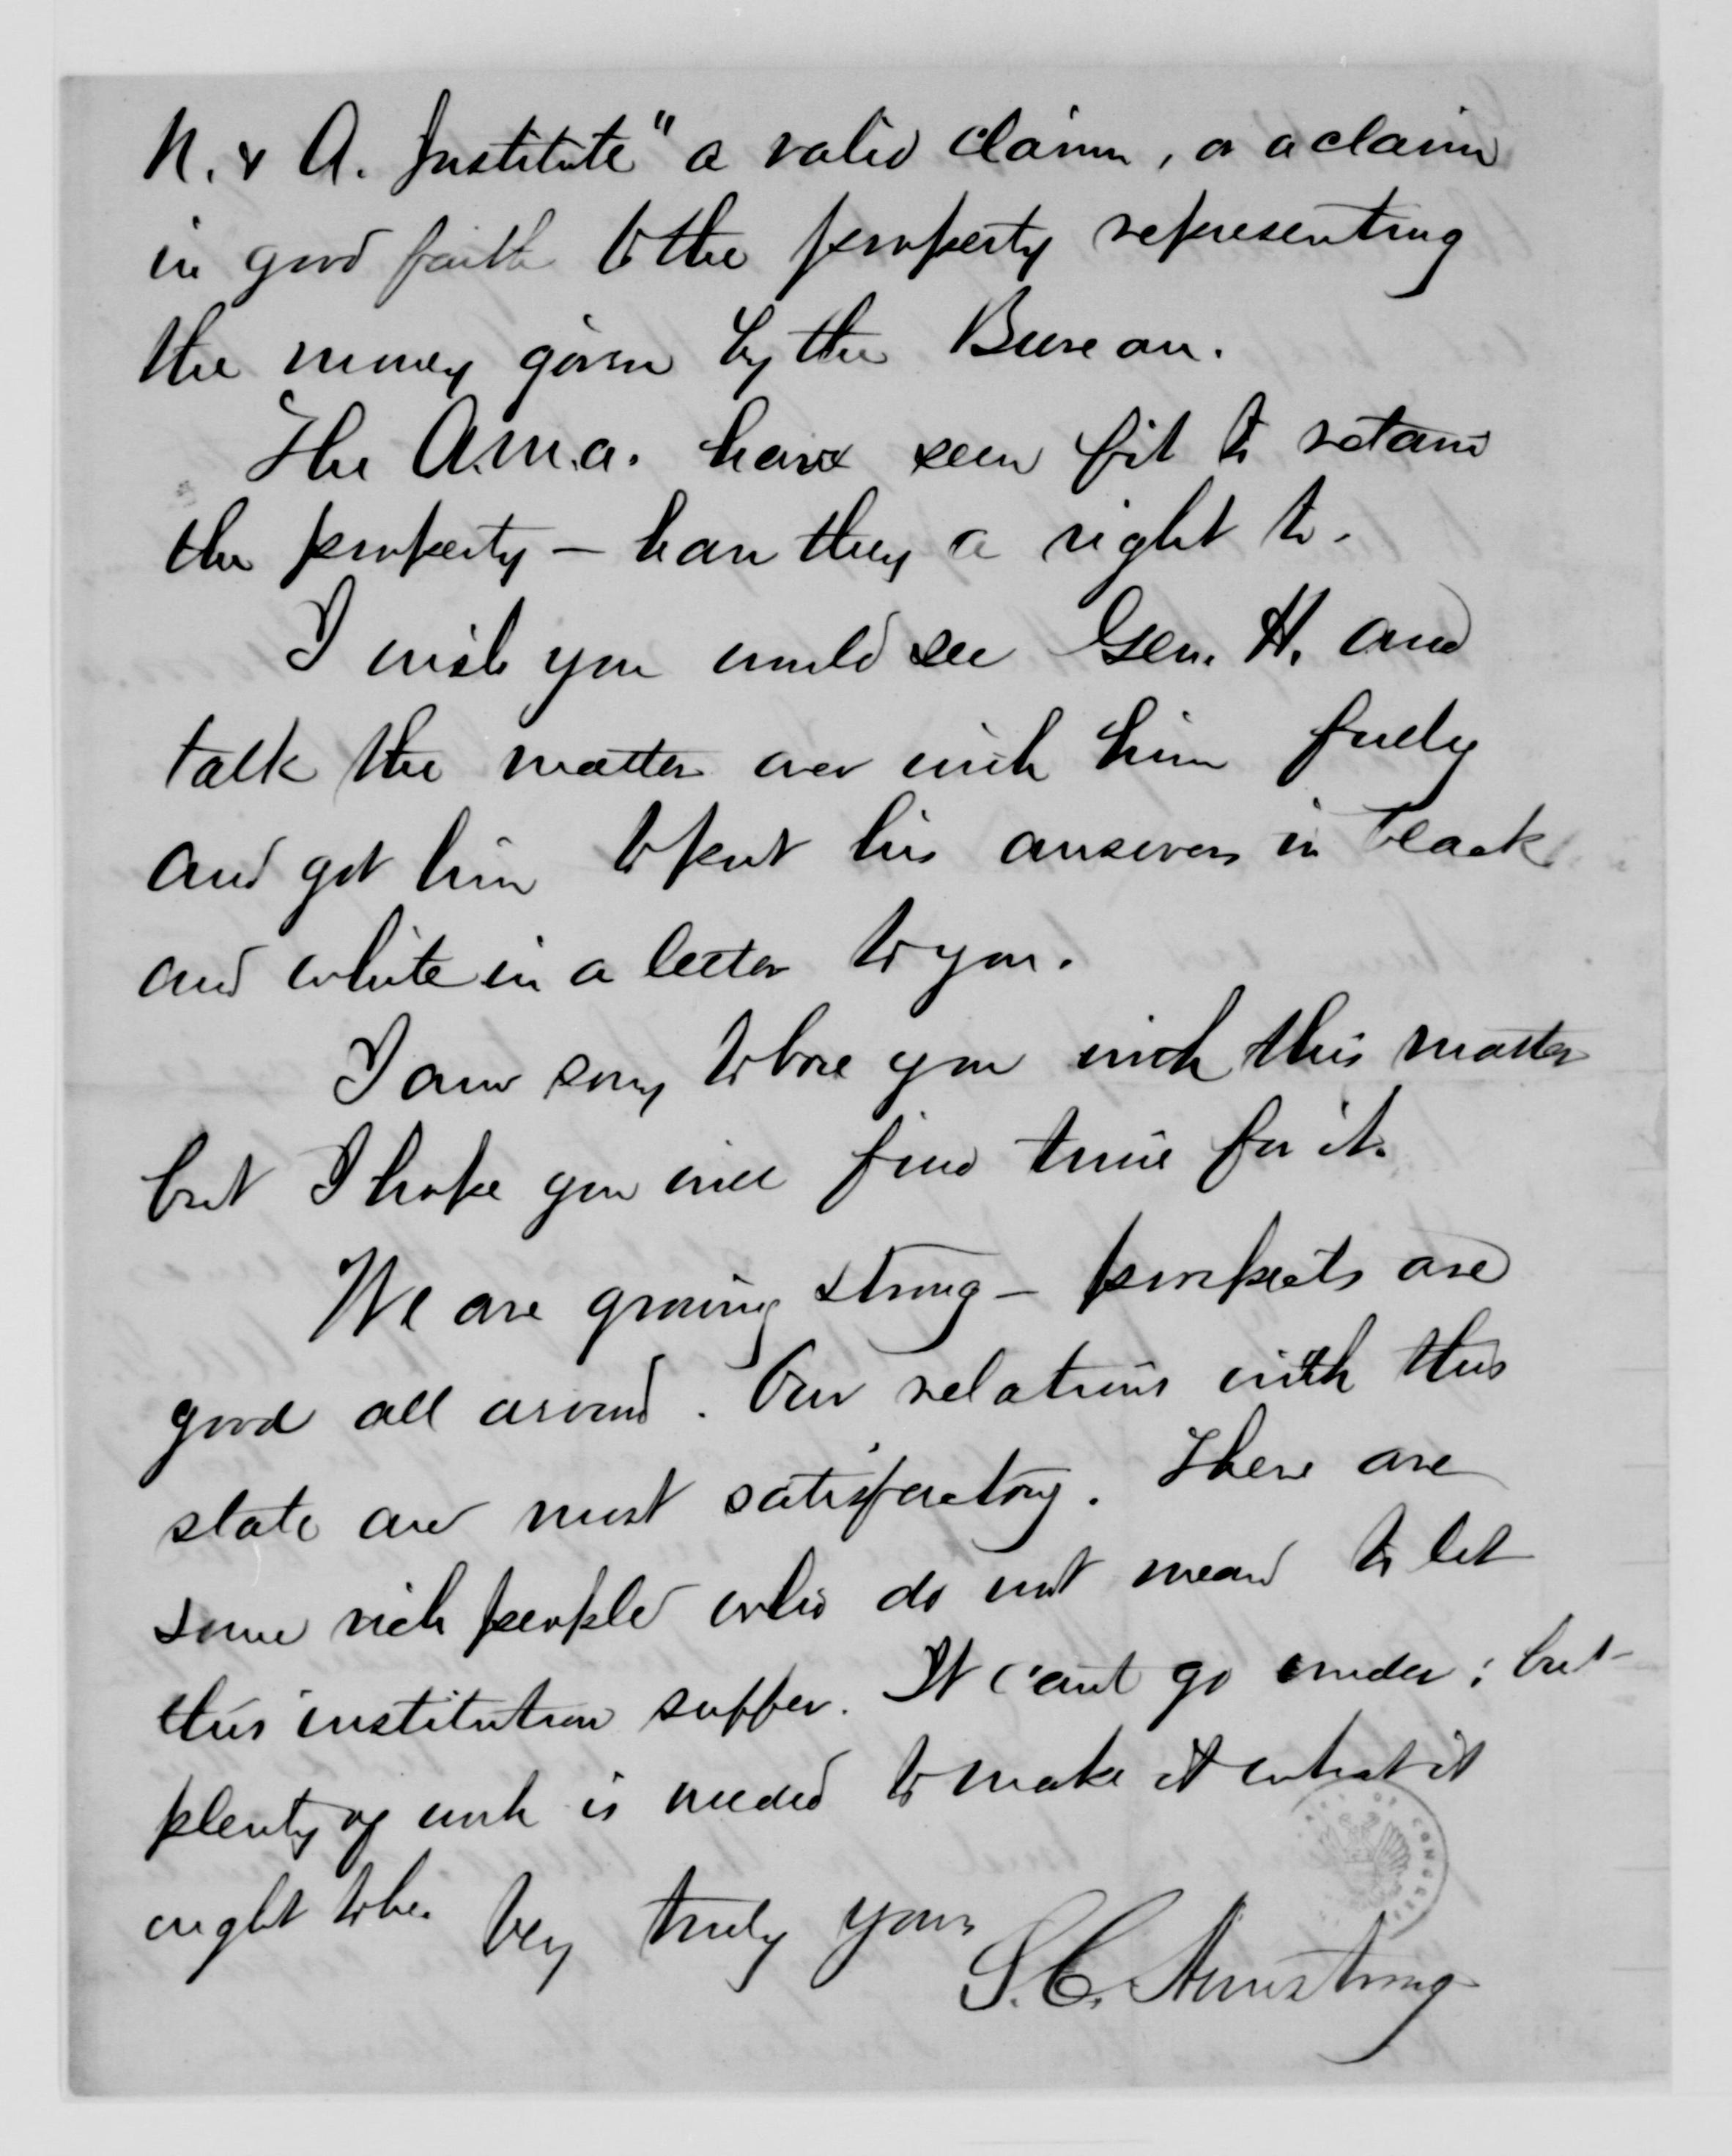 N. & A. Institute" a valid claim, or a claim
in good faith to the property representing
the money given by the Bureau.
The A.M.A. have seen fit to retain
the property — have they a right to.
I wish you would see Gen. H. and
talk the matter over with him freely
and get him to put his answers in black
and white in a letter to you.
I am sorry to bore you with this matter
but I hope you will find time for it.
We are growing strong — prospects are
good all around. Our relations with this
state are most satisfactory. There are
some rich people who do not mean to let
this institution suffer. It can't go under; but
plenty of work is needed to make it what it
ought to be. Very truly yours
S. C. Armstrong
OF CONGRESS